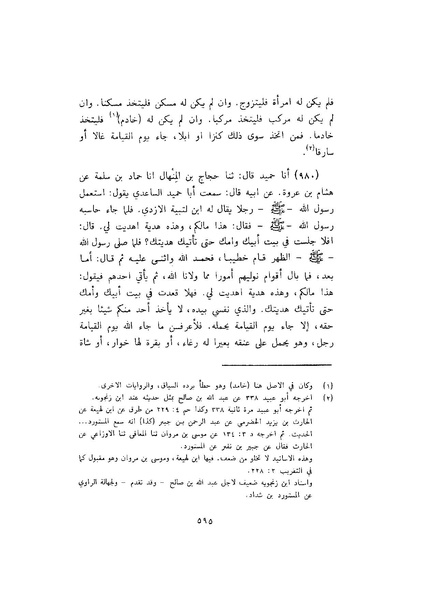 فلم يكن له امرأة فليتزوج. وان لم يكن له مسكن فليتخذ مسكنا. وان
لم يكن له مركب فليتخذ مركبا. وان لم يكن له (خادم)(١) فليتخذ
خادما. فمن اتخذ سوى ذلك كنزا او ابلا، جاء يوم القيامة غالا أو
سارقا(٢).
(٩٨٠) أنا حميد قال: ثنا حجاج بن المنهال انا حماد بن سلمة عن
هشام بن عروة. عن ابيه قال: سمعت أبا حميد الساعدي يقول: استعمل
رسول الله - ﷺ - رجلا يقال له ابن لتبية الازدي. فلما جاء حاسبه
رسول الله - ﷺ - فقال: هذا مالكم، وهذه هدية اهديت لي. قال:
افلا جلست في بيت أبيك وامك حتى تأتيك هديتك؟ فلما صلى رسول الله
- ﷺ - الظهر قام خطيبا، فحمد الله واثنى عليه ثم قال: أما
بعد، فما بال أقوام نوليهم أمورا مما ولانا الله، ثم يأتي احدهم فيقول:
هذا مالكم، وهذه هدية اهديت لي. فهلا قعدت في بيت أبيك وأمك
حتى تأتيك هديتك. والذي نفسي بيده، لا يأخذ أحد منكم شيئا بغير
حقه، إلا جاء يوم القيامة يحمله. فلأعرفن ما جاء الله يوم القيامة
رجل، وهو يحمل على عنقه بعيرا له رغاء، أو بقرة لها خوار، أو شاة
(١) وكان في الاصل هنا (خامد) وهو خطأ يرده السياق، والروايات الاخرى.
(٢) اخرجه أبو عبيد ٣٣٨ عن عبد الله بن صالح بمثل حديثه عند ابن زنجويه.
ثم اخرجه أبو عبيد مرة ثانية ٣٣٨ وكذا حم ٤: ٢٢٩ من طرق عن ابن لهيعة عن
الحارث بن يزيد الحضرمي عن عبد الرحمن بن جبير (كذا) انه سمع المستورد...
الحديث. ثم اخرجه د ٣: ١٣٤ عن موسى بن مروان ثنا المعافى ثنا الاوزاعي عن
الحارث فقال عن جبير بن نفير عن المستورد.
وهذه الاسانيد لا تخلو من ضعف. فيها ابن لهيعة، وموسى بن مروان وهو مقبول كما
في التقريب ٢: ٢٢٨.
واسناد ابن زنجويه ضعيف لاجل عبد الله بن صالح - وقد تقدم - ولجهالة الراوي
عن المستورد بن شداد.
٥٩٥